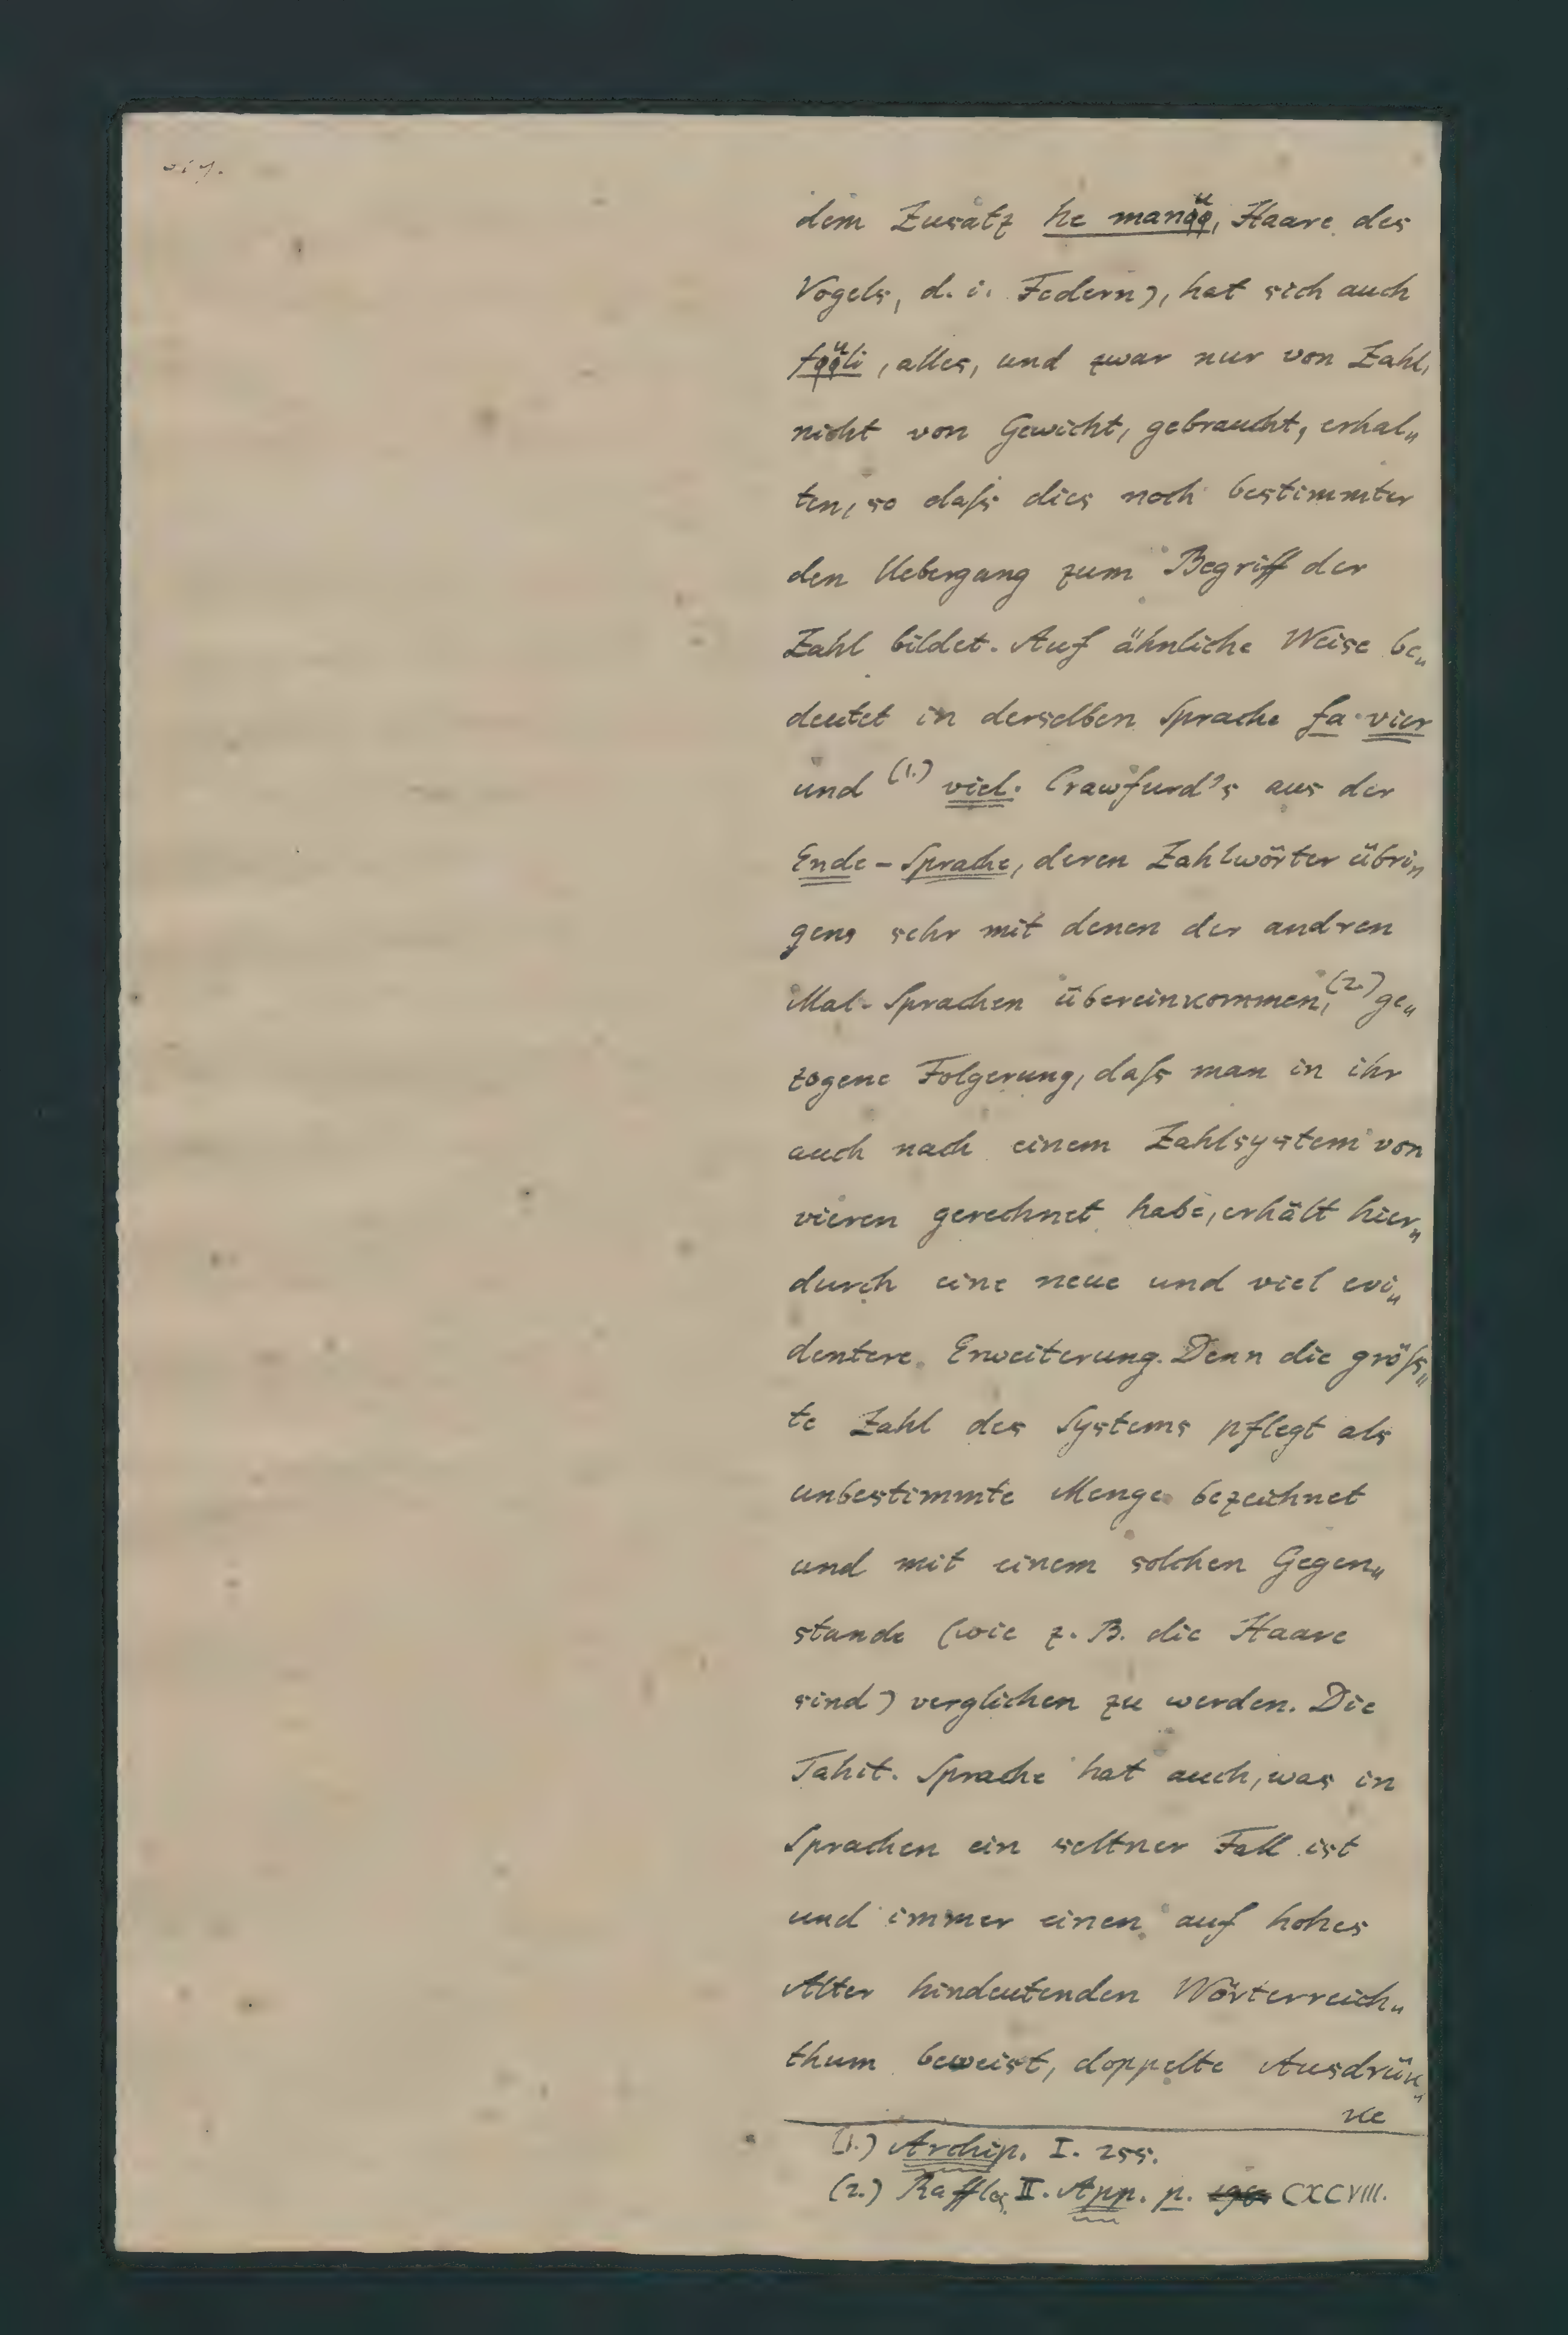 dem Zusatz he manu, Haare des
Vogels, d. i. Federn), hat sich auch
fuli, alles, und zwar nur von Zahl,
nicht von Gewicht, gebraucht, erhal„
ten, so daſs dies noch bestimmter
den Uebergang zum Begriff der
Zahl bildet. Auf ähnliche Weise be„
deutet in derselben Sprache fa vier
und (1.) viel. Crawfurd's aus der
Ende-Sprache, deren Zahlwörter übri„
gens sehr mit denen der andren
Mal. Sprachen übereinkommen, (2.) ge„
zogene Folgerung, daſs man in ihr
auch nach einem Zahlsystem von
vieren gerechnet habe, erhält hier„
durch eine neue und viel evi„
dentere Erweiterung. Denn die gröſs„
te Zahl des Systems pflegt als
unbestimmte Menge bezeichnet
und mit einem solchen Gegen„
stande (wie z. B. die Haare
sind) verglichen zu werden. Die
Tahit. Sprache hat auch, was in
Sprachen ein seltner Fall ist
und immer einen auf hohes
Alter hindeutenden Wörterreich„
thum beweist, doppelte Ausdrük„
ke
(1.) Archip. I. 255.
(2.) Raffles II. App. p. CXCVIII.